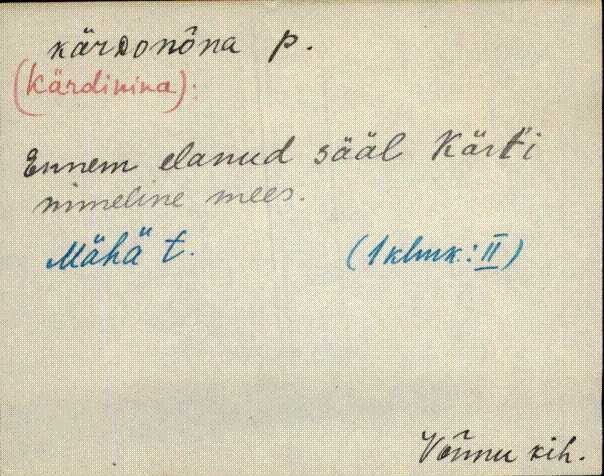 kärDonõna p.
(Kärdinina):
Ennem elanud sääl Kärti
nimeline mees.
Mähä t. (1 klmk.: II)
Võnnu kih.